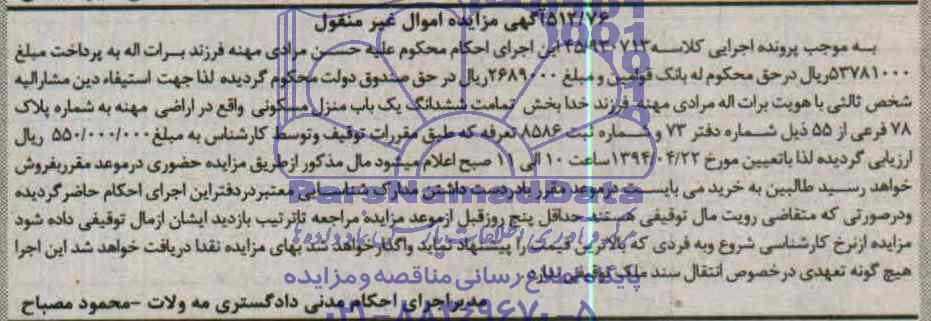 ۵۱۲/۷۶آگهی مزایده اموال غیر منقول
به موجب پرونده اجرایی کلاسه ۴۵/۹۳۰۷۱۳ این اجرای احکام محکوم علیه حسن مرادی مهنه فرزند برات اله به پرداخت مبلغ
۵۳۷۸۱۰۰۰ریال در حق محکوم له بانک قوامین و مبلغ ۲۶۸۹۰۰۰ریال در حق صندوق دولت محکوم گردیده لذا جهت استیفاء دین مشارالیه
شخص ثالثی با هویت برات اله مرادی مهنه فرزند خدا بخش تمامت ششدانگ یک باب منزل مسکونی واقع در اراضی مهنه به شماره پلاک
۷۸ فرعی از ۵۵ ذیل شماره دفتر ۷۳ و شماره ثبت ۸۵۸۶ تعرفه که طبق مقررات توقیف وتوسط کارشناس به مبلغ ۵۵۰/۰۰۰/۰۰۰ ریال
ارزیابی گردیده لذا باتعیین مورخ ۱۳۹۴/۰۴/۲۲ساعت ۱۰ الی ۱۱ صبح اعلام میشود مال مذکور ازطریق مزایده حضوری درموعد مقرربفروش
خواهد رسید طالبین به خرید می بایست درموعد مقرر بادردست داشتن مدارک شناسایی معتبردردفتراین اجرای احکام حاضرگردیده
ودرصورتی که متقاضی رویت مال توقیفی هستند حداقل پنج روزقبل ازموعد مزایده مراجعه تاترتیب بازدید ایشان ازمال توقیفی داده شود
مزایده ازنرخ کارشناسی شروع وبه فردی که بالاترین قیمت را پیشنهاد نماید واگذارخواهد شد بهای مزایده نقدا دریافت خواهد شد این اجرا
هیچ گونه تعهدی درخصوص انتقال سند ملک توقیفی ندارد
مدیراجرای احکام مدنی دادگستری مه ولات -محمود مصباح
ParsNamadData
پایگاه اطلاع رسانی مناقصه ومزایده
۰۲۱-۸۸۳۴۹۶۷۰-۵